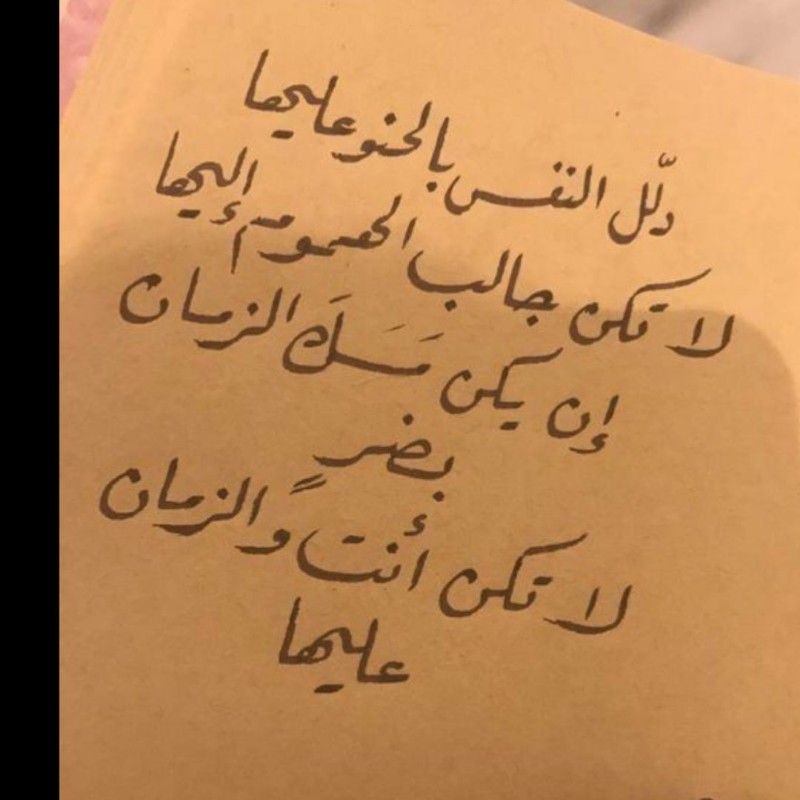 دلّل النفس بالحنو عليها
لا تكن جالب الهموم إليها
إن يكن مَسَكَ الزمان
بضرٍ
لا تكن أنت والزمان
عليها